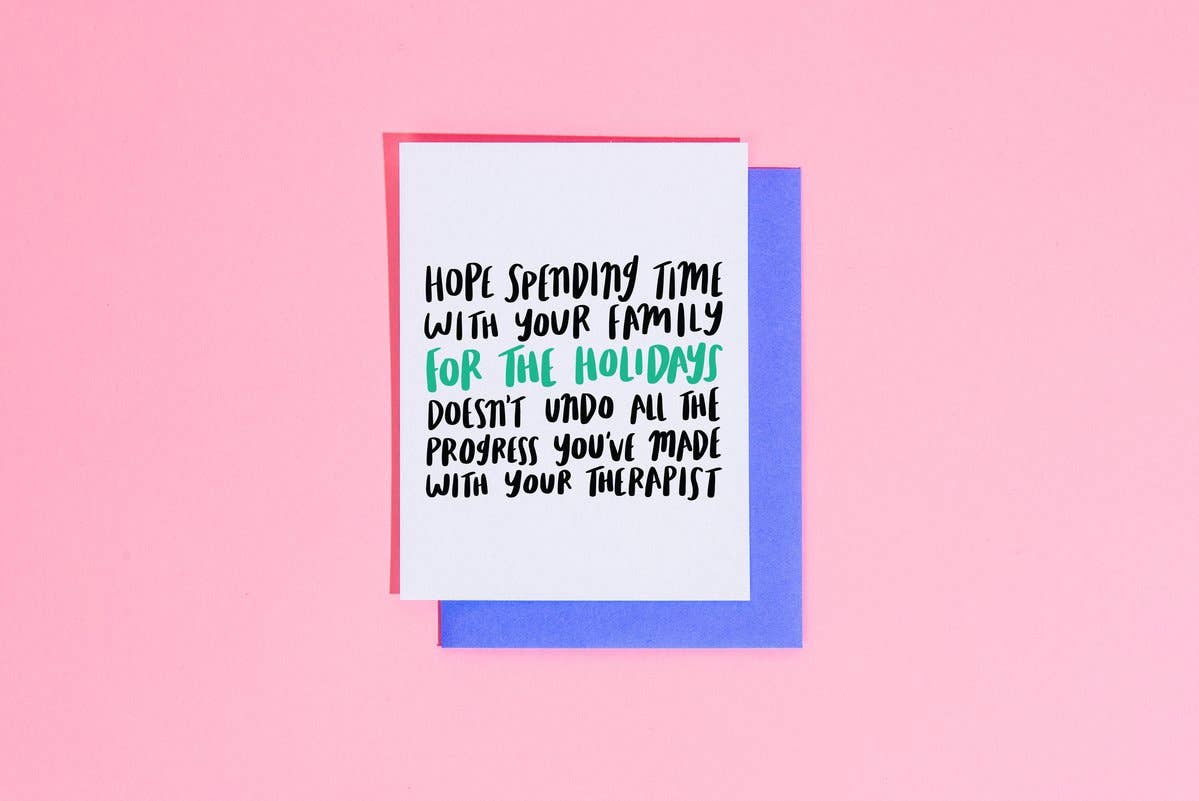 HOPE SPENDING TIME
WITH YOUR FAMILY
FOR THE HOLIDAYS
DOESN'T UNDO ALL THE
PROGRESS YOU'VE MADE
WITH YOUR THERAPIST